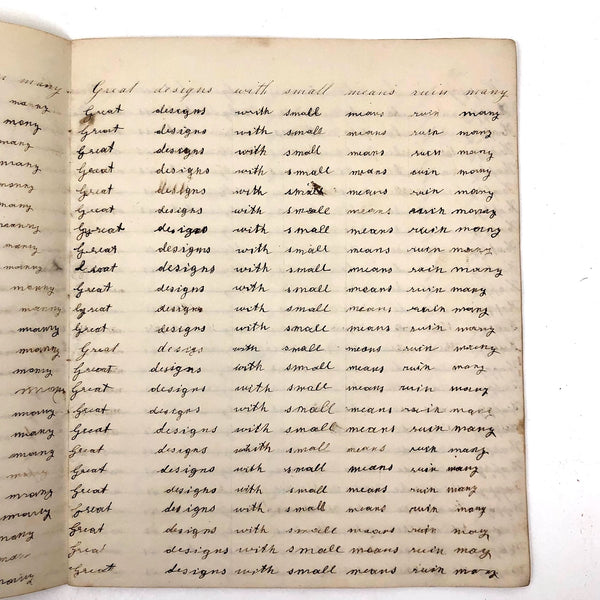 many Great designs with small means ruin many
many Great designs with small means ruin many
many Great designs with small means ruin many
many Great designs with small means ruin many
many Great designs with small means ruin many
many Great designs with small means ruin many
many Great designs with small means ruin many
many Great designs with small means ruin many
many designs with small means ruin many
many Great designs with small means ruin many
many Great designs with small means ruin many
many Great designs with small means ruin many
many Great design with small means ruin many
many Great designs with small means ruin many
Great designs with small means ruin many
many Great designs with small means ruin many
many Great designs with small means ruin many
many Great designs whith small means ruin many
many Great designs with small means ruin many
many Great designs with small means ruin many
many Great designs with small means ruin many
many Great designs with small means ruin many
many Great designs with small means ruin many
many Great designs with small means ruin many